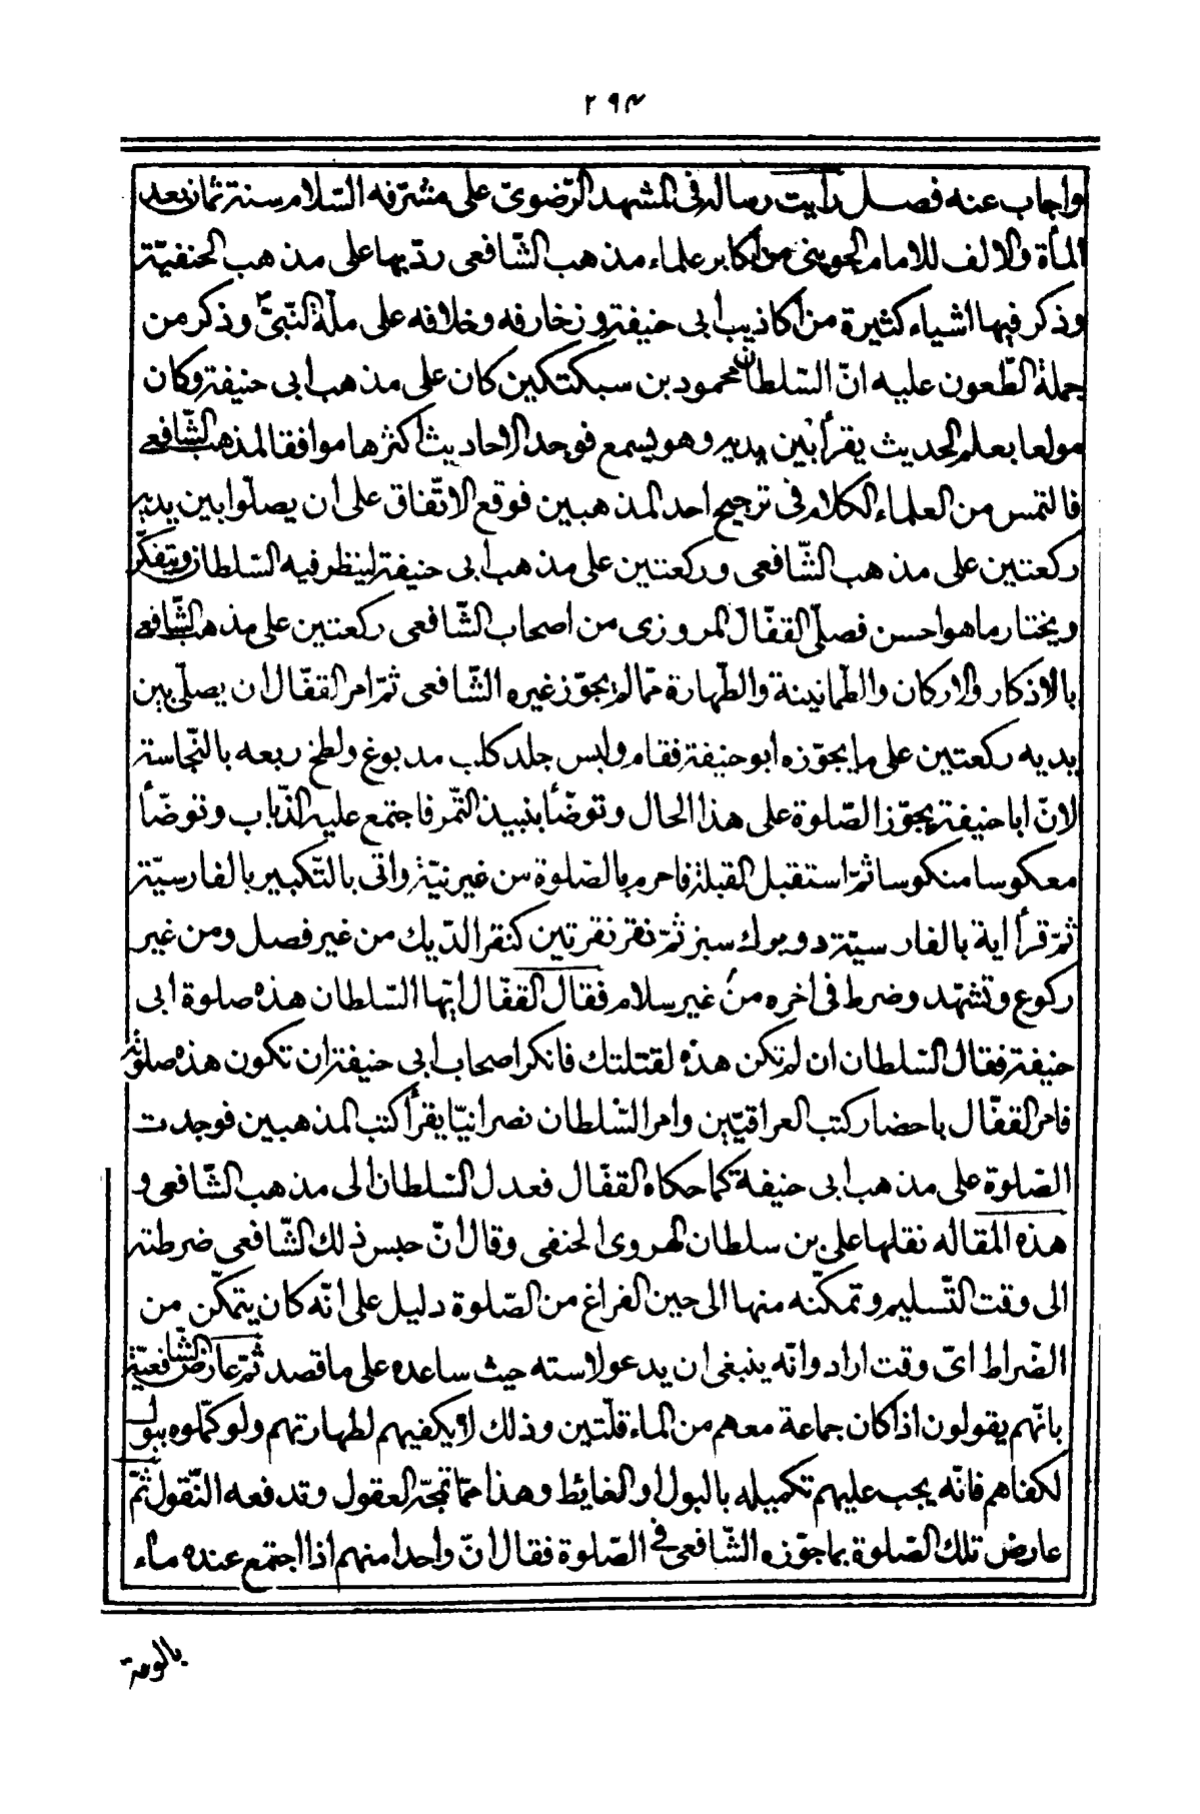 ٢٩٤
واجاب عنه فصل رأيت رسالة فى المشهد الرّضوىّ على مشرّفه السّلام سنة ثمان بعد
المأة والالف للامام الجوينى من اكابر علماء مذهب الشّافعى ردّ بها على مذهب الحنفيّة
وذكر فيها اشياء كثيرة من اكاذيب ابى حنيفة وزخارفه وخلافه على ملّة النّبىّ وذكر من
جملة الطّعون عليه انّ السّلطان محمود بن سبكتكين كان على مذهب ابى حنيفة وكان
مولعا بعلم الحديث يقرأ بين يديه وهو يسمع فوجد الاحاديث اكثرها موافقا لمذهب الشّافعى
فالتمس من العلماء الكلام فى ترجيح احد المذهبين فوقع الاتّفاق على ان يصلّوا بين يديه
ركعتين على مذهب الشّافعى وركعتين على مذهب ابى حنيفة لينظر فيه السّلطان ويتفكّر
ويختار ما هو احسن فصلّى القفّال المروزى من اصحاب الشّافعى ركعتين على مذهب الشّافعى
بالاذكار والاركان والطّمانينة والطّهارة ممّا لم يجوّز غيره الشّافعى ثمّ امر القفّال ان يصلّى بين
يديه ركعتين على ما يجوّزه ابو حنيفة فقام ولبس جلد كلب مدبوغ ولطخ ربعه بالنّجاسة
لانّ ابا حنيفة يجوّز الصّلوة على هذا الحال وتوضّأ بنبيذ التّمر فاجتمع عليه الذّباب وتوضّأ
معكوسا منكوسا ثمّ استقبل القبلة فاحرم بالصّلوة من غير نيّة واتى بالتّكبير بالفارسيّة
ثمّ قرأ اية بالفارسيّة دو برك سبز ثمّ نقر نقرتين كنقر الدّيك من غير فصل ومن غير
ركوع وتشهّد وضرط فى اخره من غير سلام فقال القفّال ايّها السّلطان هذه صلوة ابى
حنيفة فقال السّلطان ان لم تكن هذه لقتلتك فانكر اصحاب ابى حنيفة ان تكون هذه صلوته
فامر القفّال باحضار كتب العراقيّين وامر السّلطان نصرانيّا يقرأ كتب المذهبين فوجدت
الصّلوة على مذهب ابى حنيفة كما حكاه القفّال فعدل السّلطان الى مذهب الشّافعى و
هذه المقاله نقلها على بن سلطان الهروى الحنفى وقال انّ حبس ذلك الشّافعى ضرطته
الى وقت التّسليم وتمكّنه منها الى حين الفراغ من الصّلوة دليل على انّه كان يتمكّن من
الضّراط اىّ وقت اراد وانّه ينبغى ان يدعو لاسته حيث ساعده على ما قصد ثمّ عارض الشّافعيّة
بانّهم يقولون اذا كان جماعة معهم من الماء قلّتين وذلك لا يكفيهم لطهارتهم ولو كمّلوه ببول
لكفاهم فانّه يجب عليهم تكميله بالبول او الغايط وهذا ممّا تمجّه العقول وقد دفعه النّقول ثمّ
عارض تلك الصّلوة بما جوّزه الشّافعى فى الصّلوة فقال انّ واحدا منهم اذا اجتمع عنده ماء